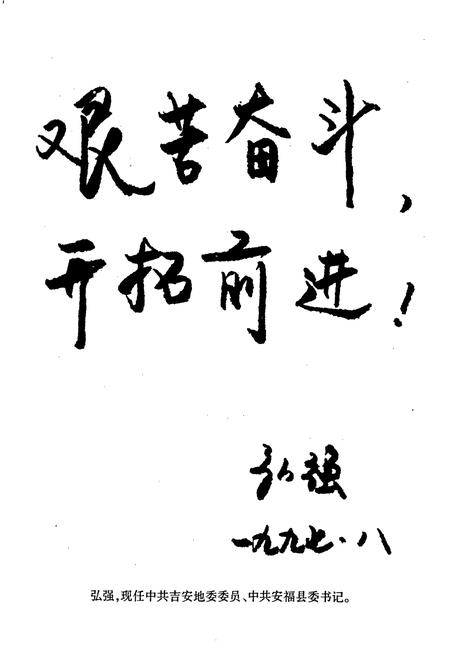 艰苦奋斗,
开拓前进!
弘强
一九九七·八
弘强,现任中共吉安地委委员、中共安福县委书记。